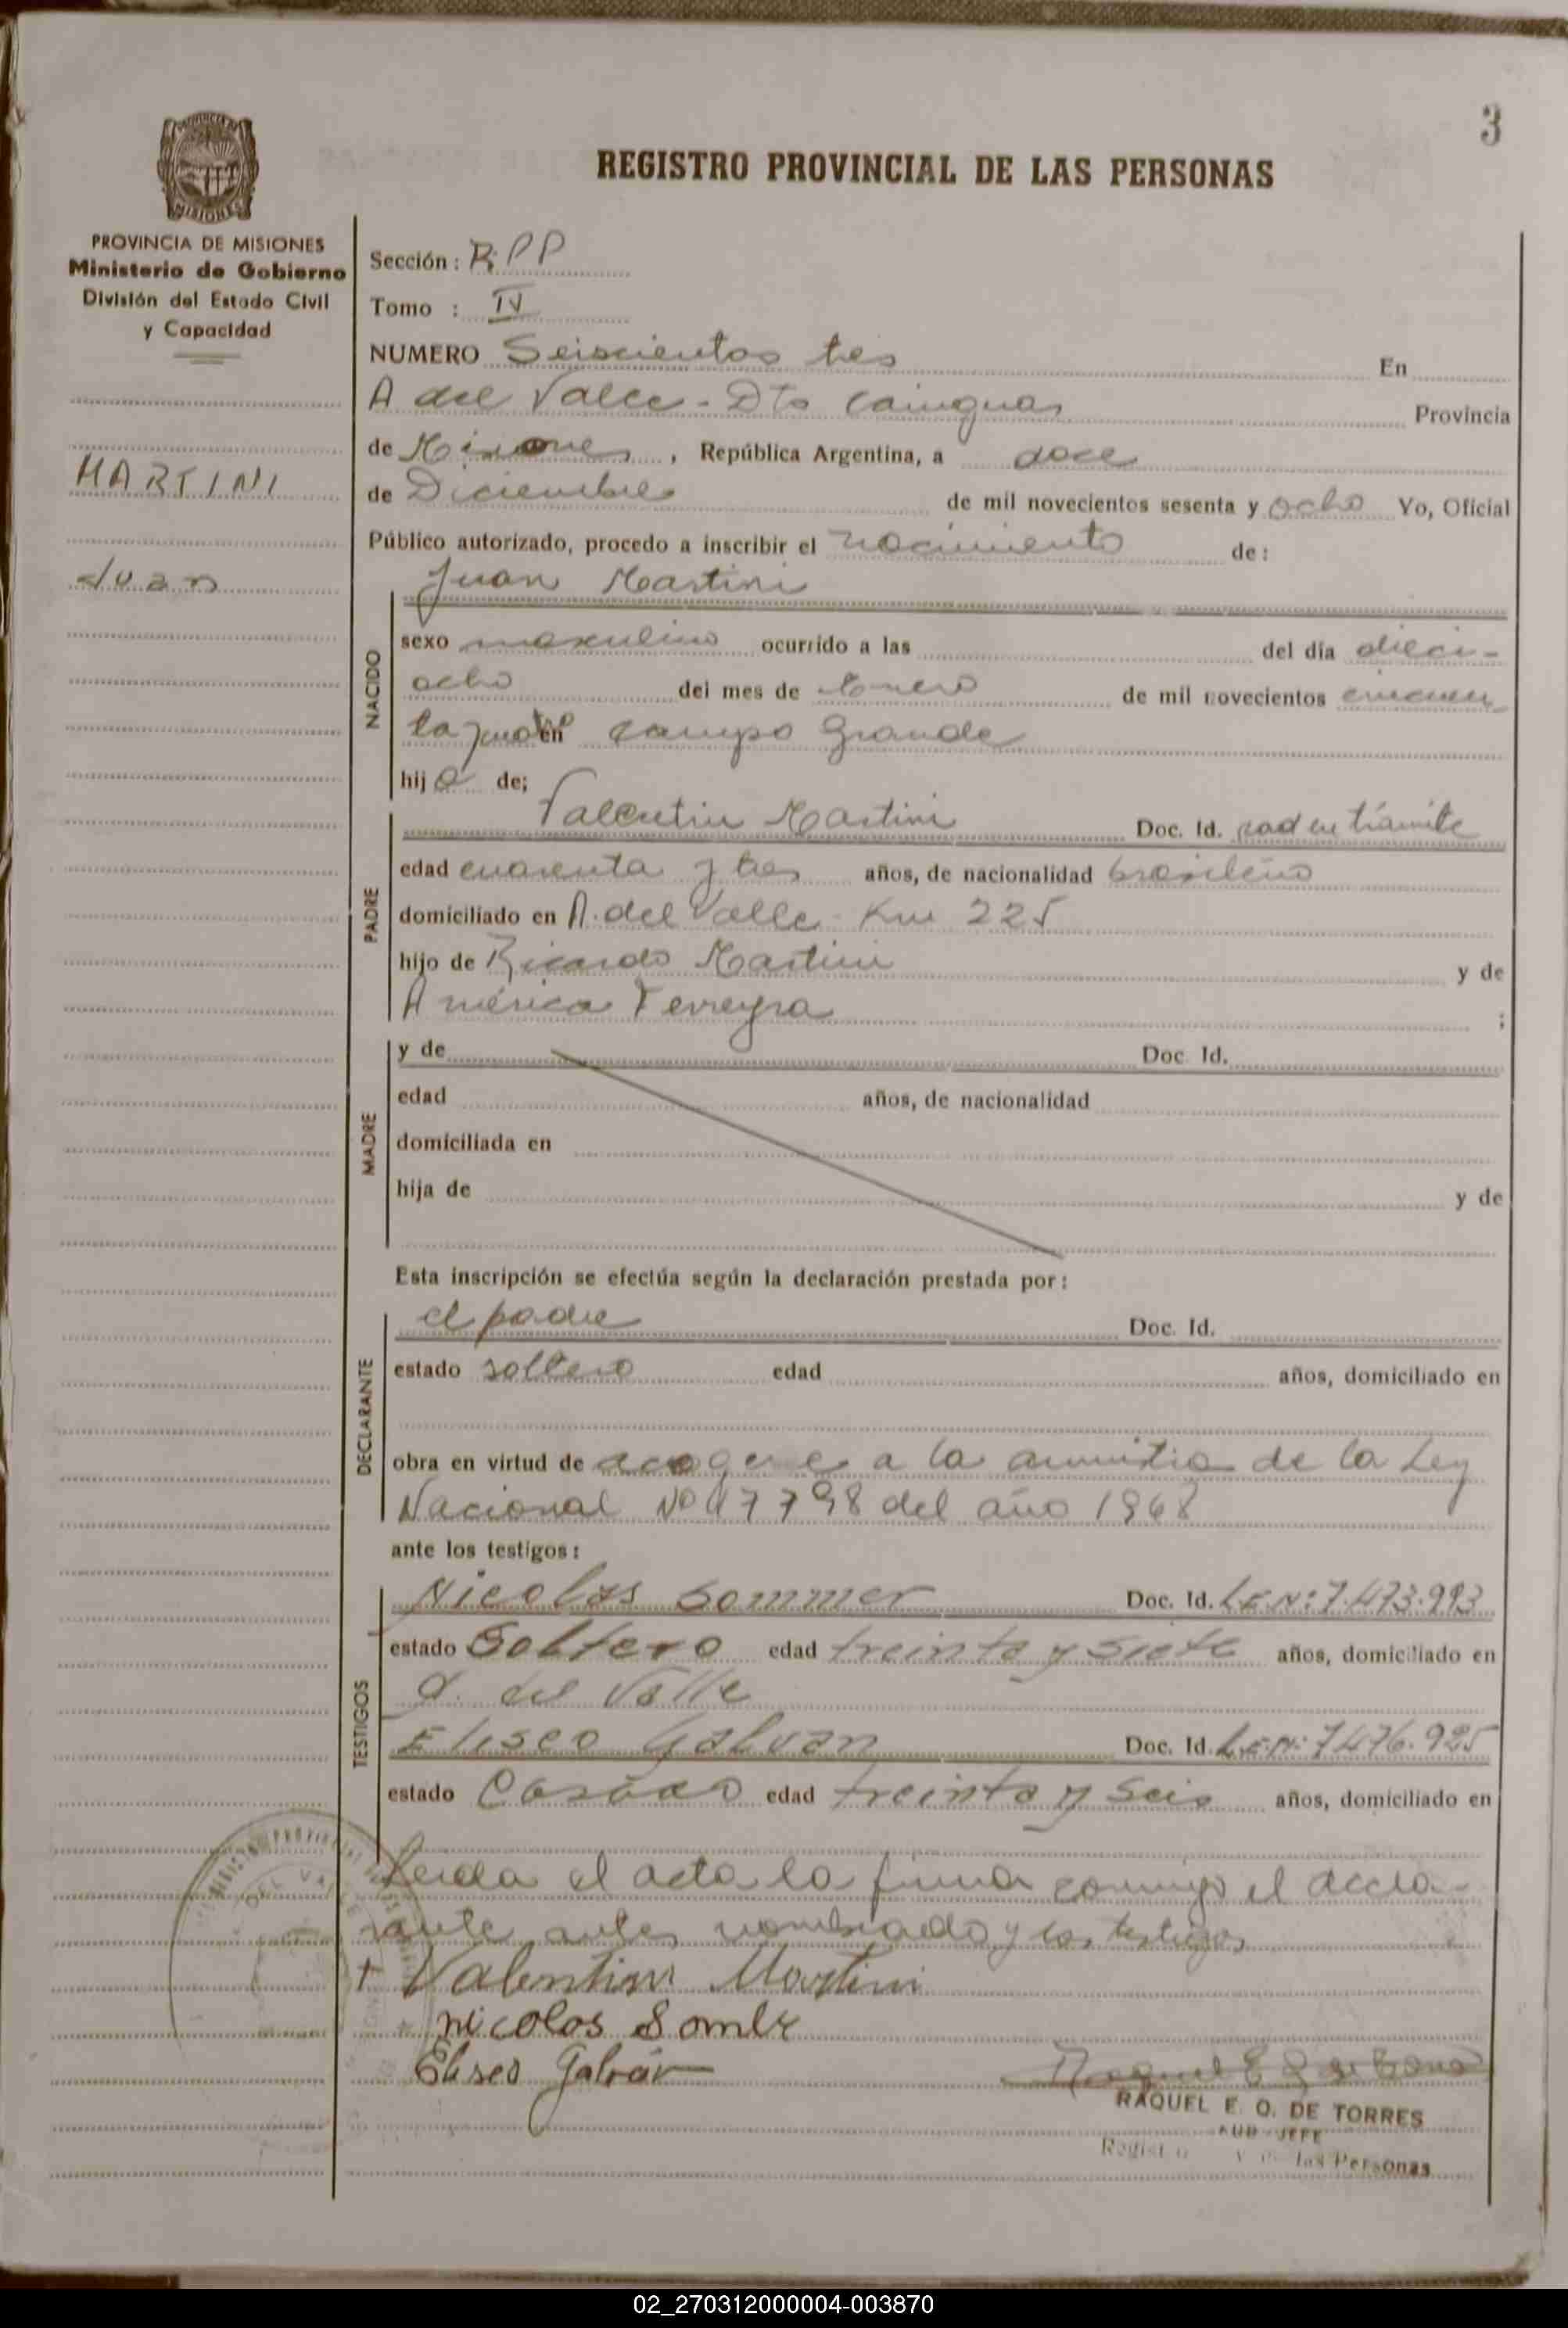 3
REGISTRO PROVINCIAL DE LAS PERSONAS
PROVINCIA DE MISIONES
MISIONES
PROVINCIA DE MISIONES
Ministerio de Gobierno
División del Estado Civil
y Capacidad
MARTINI
Juan
Sección: R.P.P
Tomo : IV
NUMERO Seiscientos tres En
A del Valle - Dto Cainguas Provincia
de Misiones, República Argentina, a doce
de Diciembre de mil novecientos sesenta y ocho Yo, Oficial
Público autorizado, procedo a inscribir el nacimiento de:
Juan Martini
NACIDO
sexo masculino ocurrido a las del día dieci-
ocho del mes de Enero de mil novecientos cincuen
ta y en Campo Grande
hijo de;
PADRE
Valentin Martini Doc. Id. rad en trámite
edad cuarenta y tres años, de nacionalidad brasileño
domiciliado en A. del Valle - Km 225
hijo de Ricardo Martini y de
América Ferreyra ;
MADRE
y de Doc. Id.
edad años, de nacionalidad
domiciliada en
hija de y de
Esta inscripción se efectúa según la declaración prestada por:
DECLARANTE
el padre Doc. Id.
estado soltero edad años, domiciliado en
obra en virtud de acogerse a la amnistia de la Ley
Nacional Nº 17798 del año 1968
ante los testigos:
TESTIGOS
Nicolas Sommer Doc. Id. L.E.Nº: 7.473.993
estado Soltero edad treinta y siete años, domiciliado en
A. del Valle
Eliseo Galvan Doc. Id. L.E.Nº: 7.476.925
estado Casado edad treinta y seis años, domiciliado en
Leida el acta la firma conmigo el decla-
rante antes nombrado y los testigos
+ Valentin Martini
nicolas
Eliseo Galván
RAQUEL E. O. DE TORRES
SUB-JEFE
las Personas
02_270312000004-003870